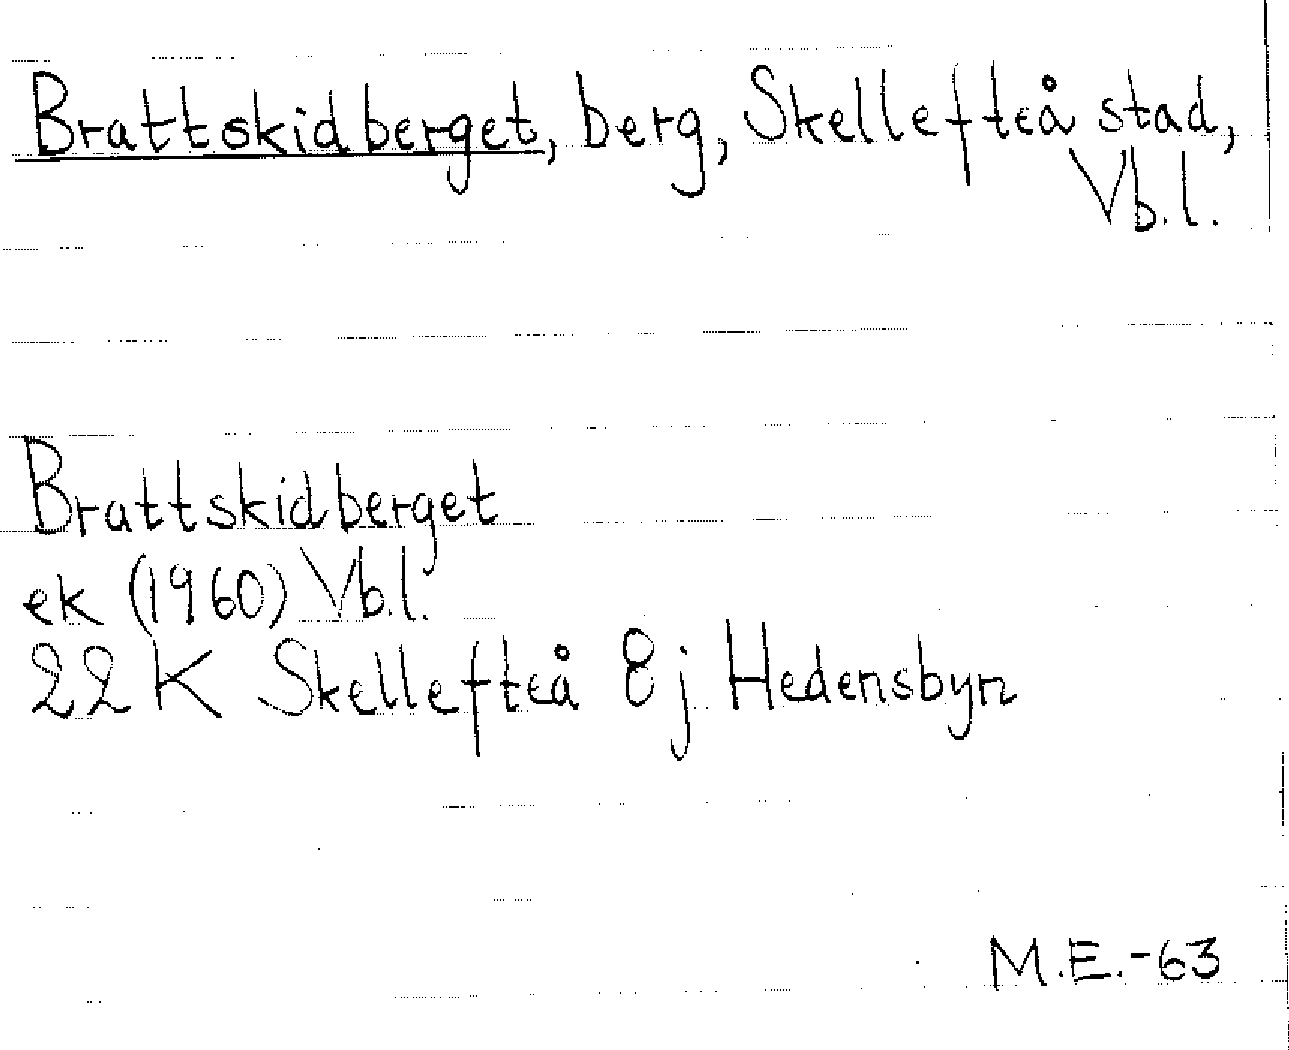 Brattskidberget, berg, Skellefteå stad,
Vb.l.
Brattskidberget
ek (1960) Vb.l.
22 K Skellefteå 8 j Hedensbyn
M.E.-63